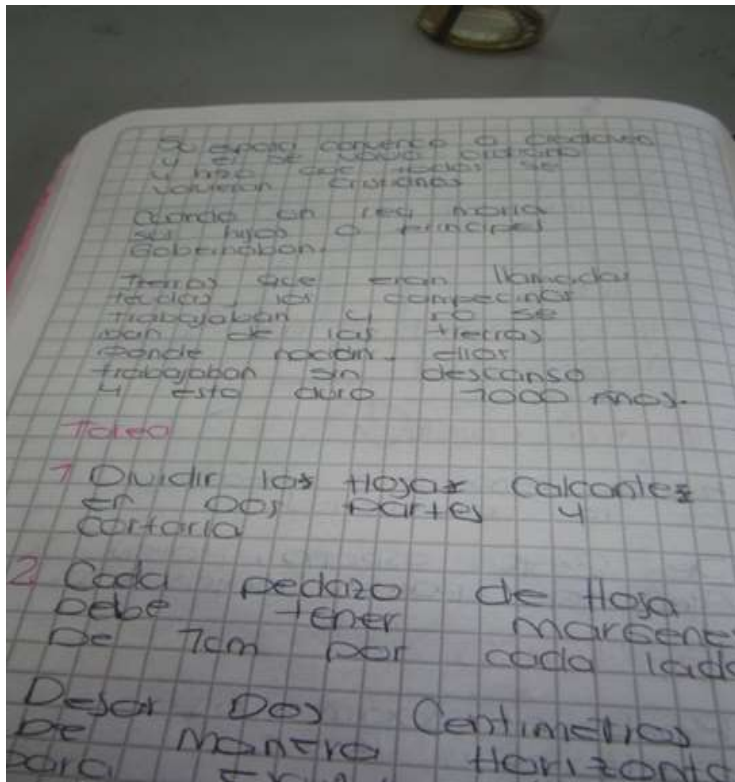 Su esposa convencio a
y el se
y hizo que todos se
volvieran cristianos
Cuando un rey moria
su hijos o principes
Gobernaban.
Tierras que eran llamadas
feudos los campecinos
trabajaban y no se
van de las tierras
Donde nacian. ellos
trabajaban sin descanso
y esto duro 1000 años.
Tarea
1 Dividir las Hojas calcables
en Dos partes y
cortarla
2 Cada pedazo de Hoja
Debe tener margene
De 1cm por cada lado
Dejar Dos Centimetros
De manera Horizonta
para